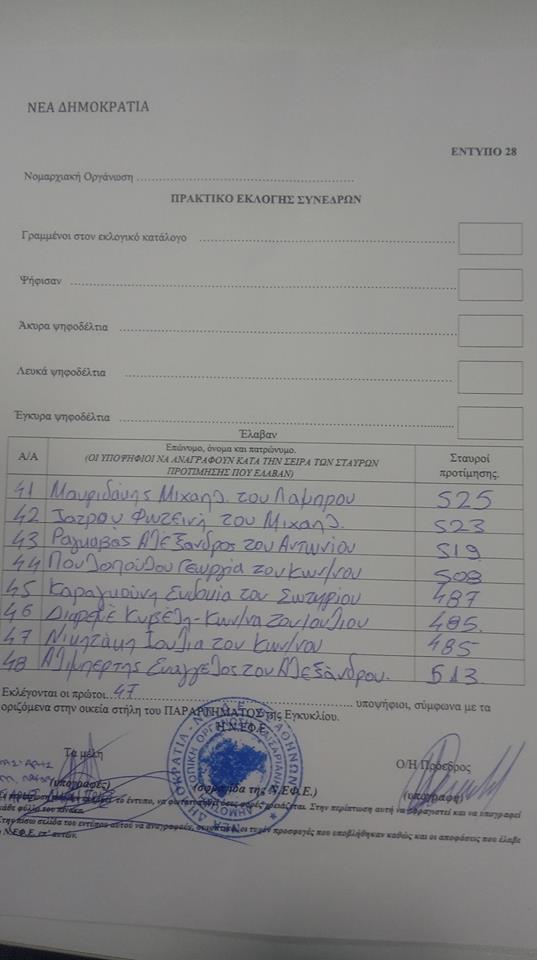 ΝΕΑ ΔΗΜΟΚΡΑΤΙΑ
ΕΝΤΥΠΟ 28
Νομαρχιακή Οργάνωση
ΠΡΑΚΤΙΚΟ ΕΚΛΟΓΗΣ ΣΥΝΕΔΡΩΝ
Γραμμένοι στον εκλογικό κατάλογο
Ψήφισαν
Άκυρα ψηφοδέλτια
Λευκά ψηφοδέλτια
Έγκυρα ψηφοδέλτια
Έλαβαν
Α/Α Επώνυμο, όνομα και πατρώνυμο. (ΟΙ ΥΠΟΨΗΦΙΟΙ ΝΑ ΑΝΑΓΡΑΦΟΥΝ ΚΑΤΑ ΤΗΝ ΣΕΙΡΑ ΤΩΝ ΣΤΑΥΡΩΝ ΠΡΟΤΙΜΗΣΗΣ ΠΟΥ ΕΛΑΒΑΝ) Σταυροί προτίμησης.
41 Μαυριδάκης Μιχαηλ. του Λαμπρου 525
42 Ιατρου Φωτεινή του Μιχαηλ. 523
43 Ραγκαβάς Αλέξανδρος του Αντωνίου 519
44 Πουλοπούλου Γεωργία του Κων/νου 508
45 Καραγκούνη Ευθυμία του Σωτηρίου 487
46 Διαρεμέ Κυβέλη-Κων/να του Ιουλίου 485.
47 Νικητάκη Ιουλία του Κων/νου 485
48 Αλιμπέρτης Ευαγγελος του Αλεξάνδρου. 513.
Εκλέγονται οι πρώτοι 47 υποψήφιοι, σύμφωνα με τα
οριζόμενα στην οικεία στήλη του ΠΑΡΑΡΤΗΜΑΤΟΣ της Εγκυκλίου.
Η Ν.ΕΦ.Ε.
Τα μέλη
Ο/Η Πρόεδρος
(υπογραφές) (σφραγίδα της Ν.Ε.Φ.Ε.) (υπογραφή)
το έντυπο, να φωτοτυπηθεί όσες φορές χρειάζεται. Στην περίπτωση αυτή να σφραγιστεί και να υπογραφεί
κάθε φύλλο του πίνακα.
Στην πίσω σελίδα του εντύπου αυτού να αναγραφούν, οι τυχόν προσφυγές που υποβλήθηκαν καθώς και οι αποφάσεις που έλαβε
η Ν.ΕΦ.Ε. επ' αυτών.